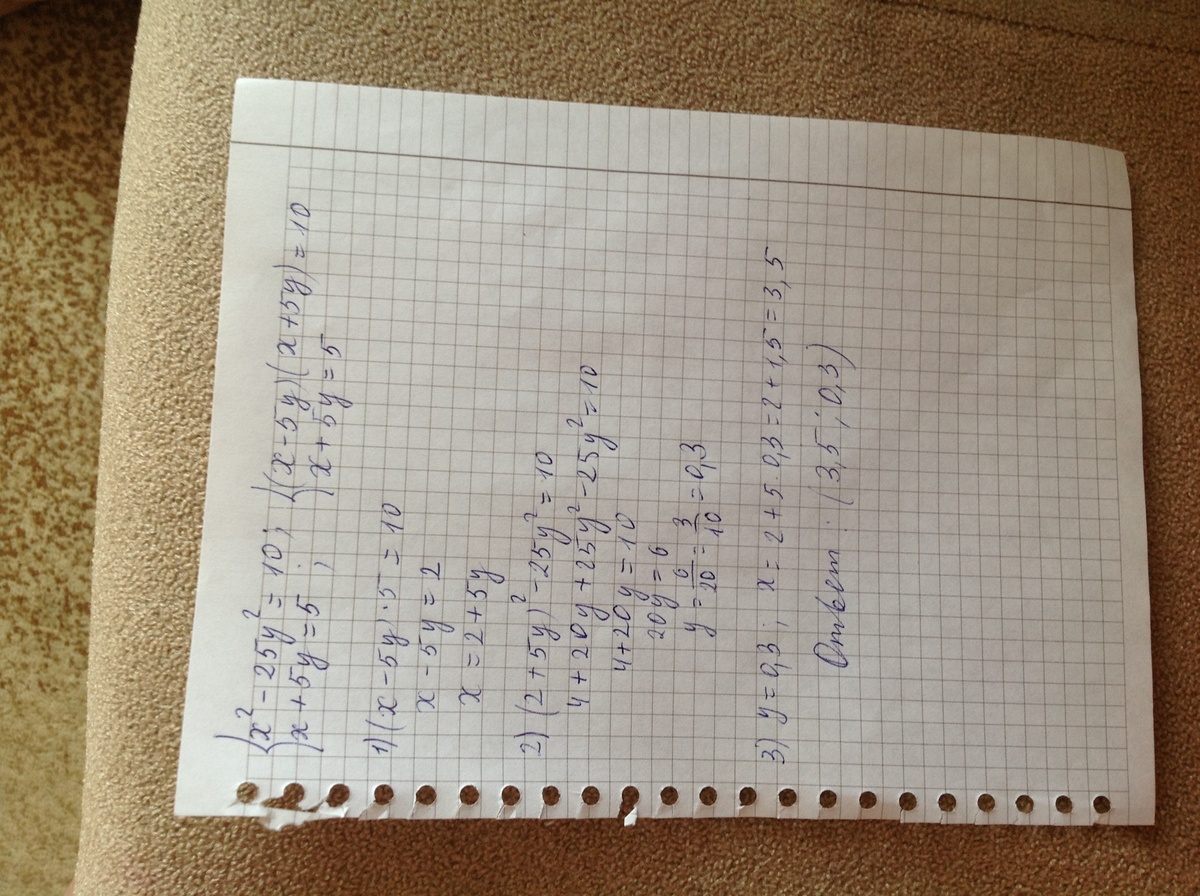 {x² - 25y² = 10; {(x - 5y)(x + 5y) = 10
{x + 5y = 5; {x + 5y = 5
1) (x - 5y) · 5 = 10
x - 5y = 2
x = 2 + 5y
2) (2 + 5y)² - 25y² = 10
4 + 20y + 25y² - 25y² = 10
4 + 20y = 10
20y = 6
y = 6/20 = 3/10 = 0,3
3) y = 0,3; x = 2 + 5 · 0,3 = 2 + 1,5 = 3,5
Ответ: (3,5; 0,3)